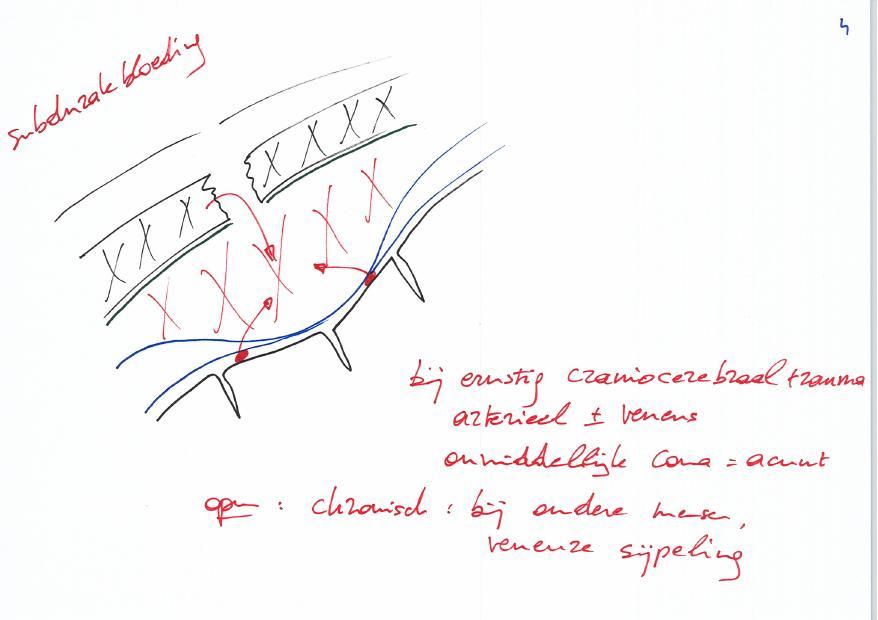 4
subdurale bloeding
bij ernstig craniocerebraal trauma
arterieel ± veneus
onmiddellijk coma = acuut
opm : chronisch : bij oudere mensen,
veneuze sijpeling